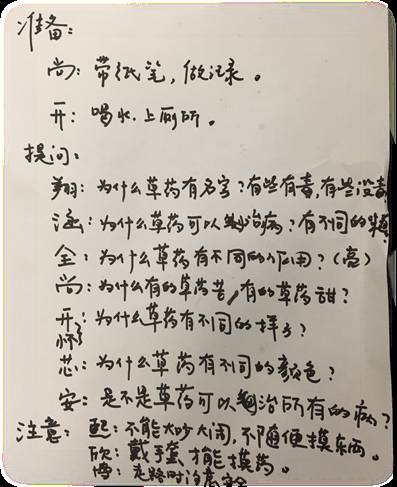 准备:
尚: 带纸笔,做记录。
开: 喝水.上厕所。
提问:
翔: 为什么草药有名字?有些有毒,有些没毒
涵: 为什么草药可以治病?有不同的
全: 为什么草药有不同的作用?(亮)
尚: 为什么有的草药苦,有的草药甜?
开: 怀: 为什么草药有不同的样子?
芯: 为什么草药有不同的颜色?
安: 是不是草药可以治所有的病?
注意: 熙: 不能大吵大闹,不随便摸东西。
欣: 戴手套,才能摸药。
博: 走路时注意安全